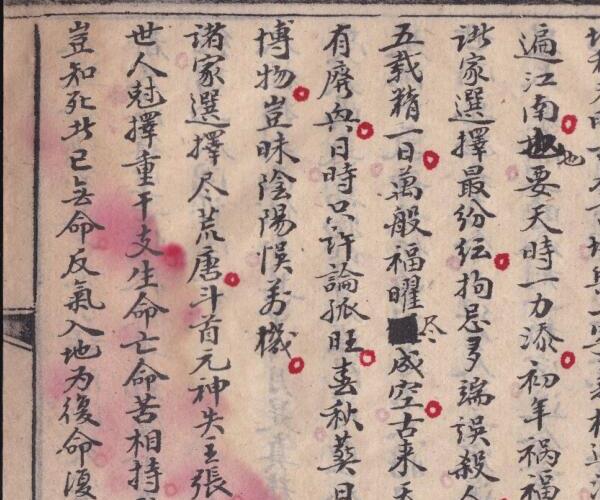 遍江南地要天時一力添初年祸福
诸家選擇最纷纭拘忌多端误殺人
五载精一日萬般福曜尽成空古来天
有廃與日時只许論孤旺春秋葬日
博物豈昧陰陽悞万機
諸家選擇尽荒唐斗首元神失主張
世人尅擇重干支生命亡命苦相持
豈知死者已無命反氣入地为復命復